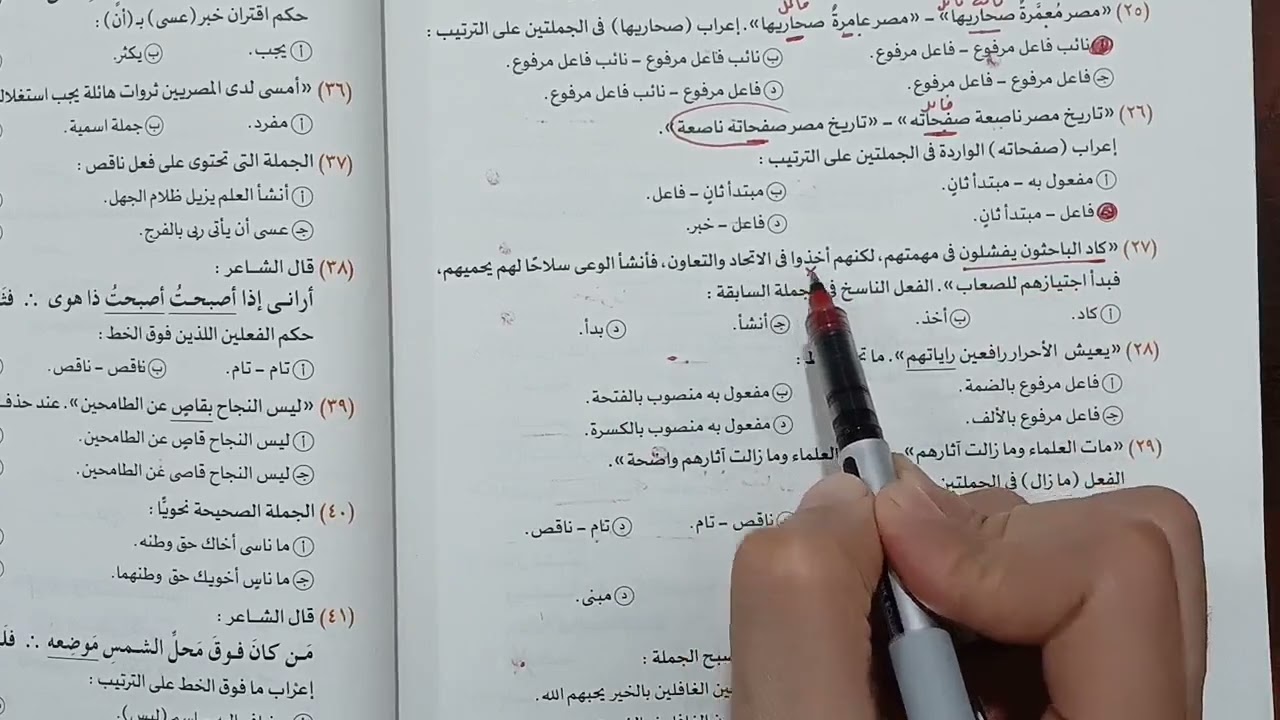 نائب فاعل
فاعل
(٢٥) «مصر مُعمَّرةٌ صحاريها» – «مصر عامِرةٌ صحاريها». إعراب (صحاريها) فى الجملتين على الترتيب :
أ نائب فاعل مرفوع – فاعل مرفوع.
ب نائب فاعل مرفوع – نائب فاعل مرفوع.
جـ فاعل مرفوع – فاعل مرفوع.
د فاعل مرفوع – نائب فاعل مرفوع.
فاعل
(٢٦) «تاريخ مصر ناصعة صفحاته» – «تاريخ مصر صفحاته ناصعة».
إعراب (صفحاته) الواردة فى الجملتين على الترتيب :
أ مفعول به – مبتدأ ثانٍ.
ب مبتدأ ثانٍ – فاعل.
جـ فاعل – مبتدأ ثانٍ.
د فاعل – خبر.
(٢٧) «كاد الباحثون يفشلون فى مهمتهم، لكنهم أخذوا فى الاتحاد والتعاون، فأنشأ الوعى سلاحًا لهم يحميهم،
فبدأ اجتيازهم للصعاب». الفعل الناسخ فى الجملة السابقة :
أ كاد.
ب أخذ.
جـ أنشأ.
د بدأ.
(٢٨) «يعيش الأحرار رافعين راياتهم». ما
أ فاعل مرفوع بالضمة.
ب مفعول به منصوب بالفتحة.
جـ فاعل مرفوع بالألف.
د مفعول به منصوب بالكسرة.
(٢٩) «مات العلماء وما زالت آثارهم» العلماء وما زالت آثارهم واضحة».
الفعل (ما زال) فى الجملتين
ناقص – تام.
د تام – ناقص.
د مبنى.
سبح الجملة :
الغافلين بالخير يحبهم الله.
حكم اقتران خبر (عسى) بـ (أن)
أ يجب.
ب يكثر.
(٣٦) «أمسى لدى المصريين ثروات هائلة يجب استغلال
أ مفرد.
ب جملة اسمية.
(٣٧) الجملة التى تحتوى على فعل ناقص :
أ أنشأ العلم يزيل ظلام الجهل.
جـ عسى أن يأتى ربى بالفرج.
(٣٨) قال الشاعر :
أرانى إذا أصبحتُ أصبحتُ ذا هوى ∴
حكم الفعلين اللذين فوق الخط :
أ تام – تام.
ب ناقص – ناقص.
(٣٩) «ليس النجاح بقاصٍ عن الطامحين». عند حذف
أ ليس النجاح قاصٍ عن الطامحين.
جـ ليس النجاح قاصى عن الطامحين.
(٤٠) الجملة الصحيحة نحويًّا :
أ ما ناسى أخاك حق وطنه.
جـ ما ناسٍ أخويك حق وطنهما.
(٤١) قال الشاعر :
مَن كانَ فوقَ مَحلِّ الشمسِ مَوضِعه ∴
إعراب ما فوق الخط على الترتيب :